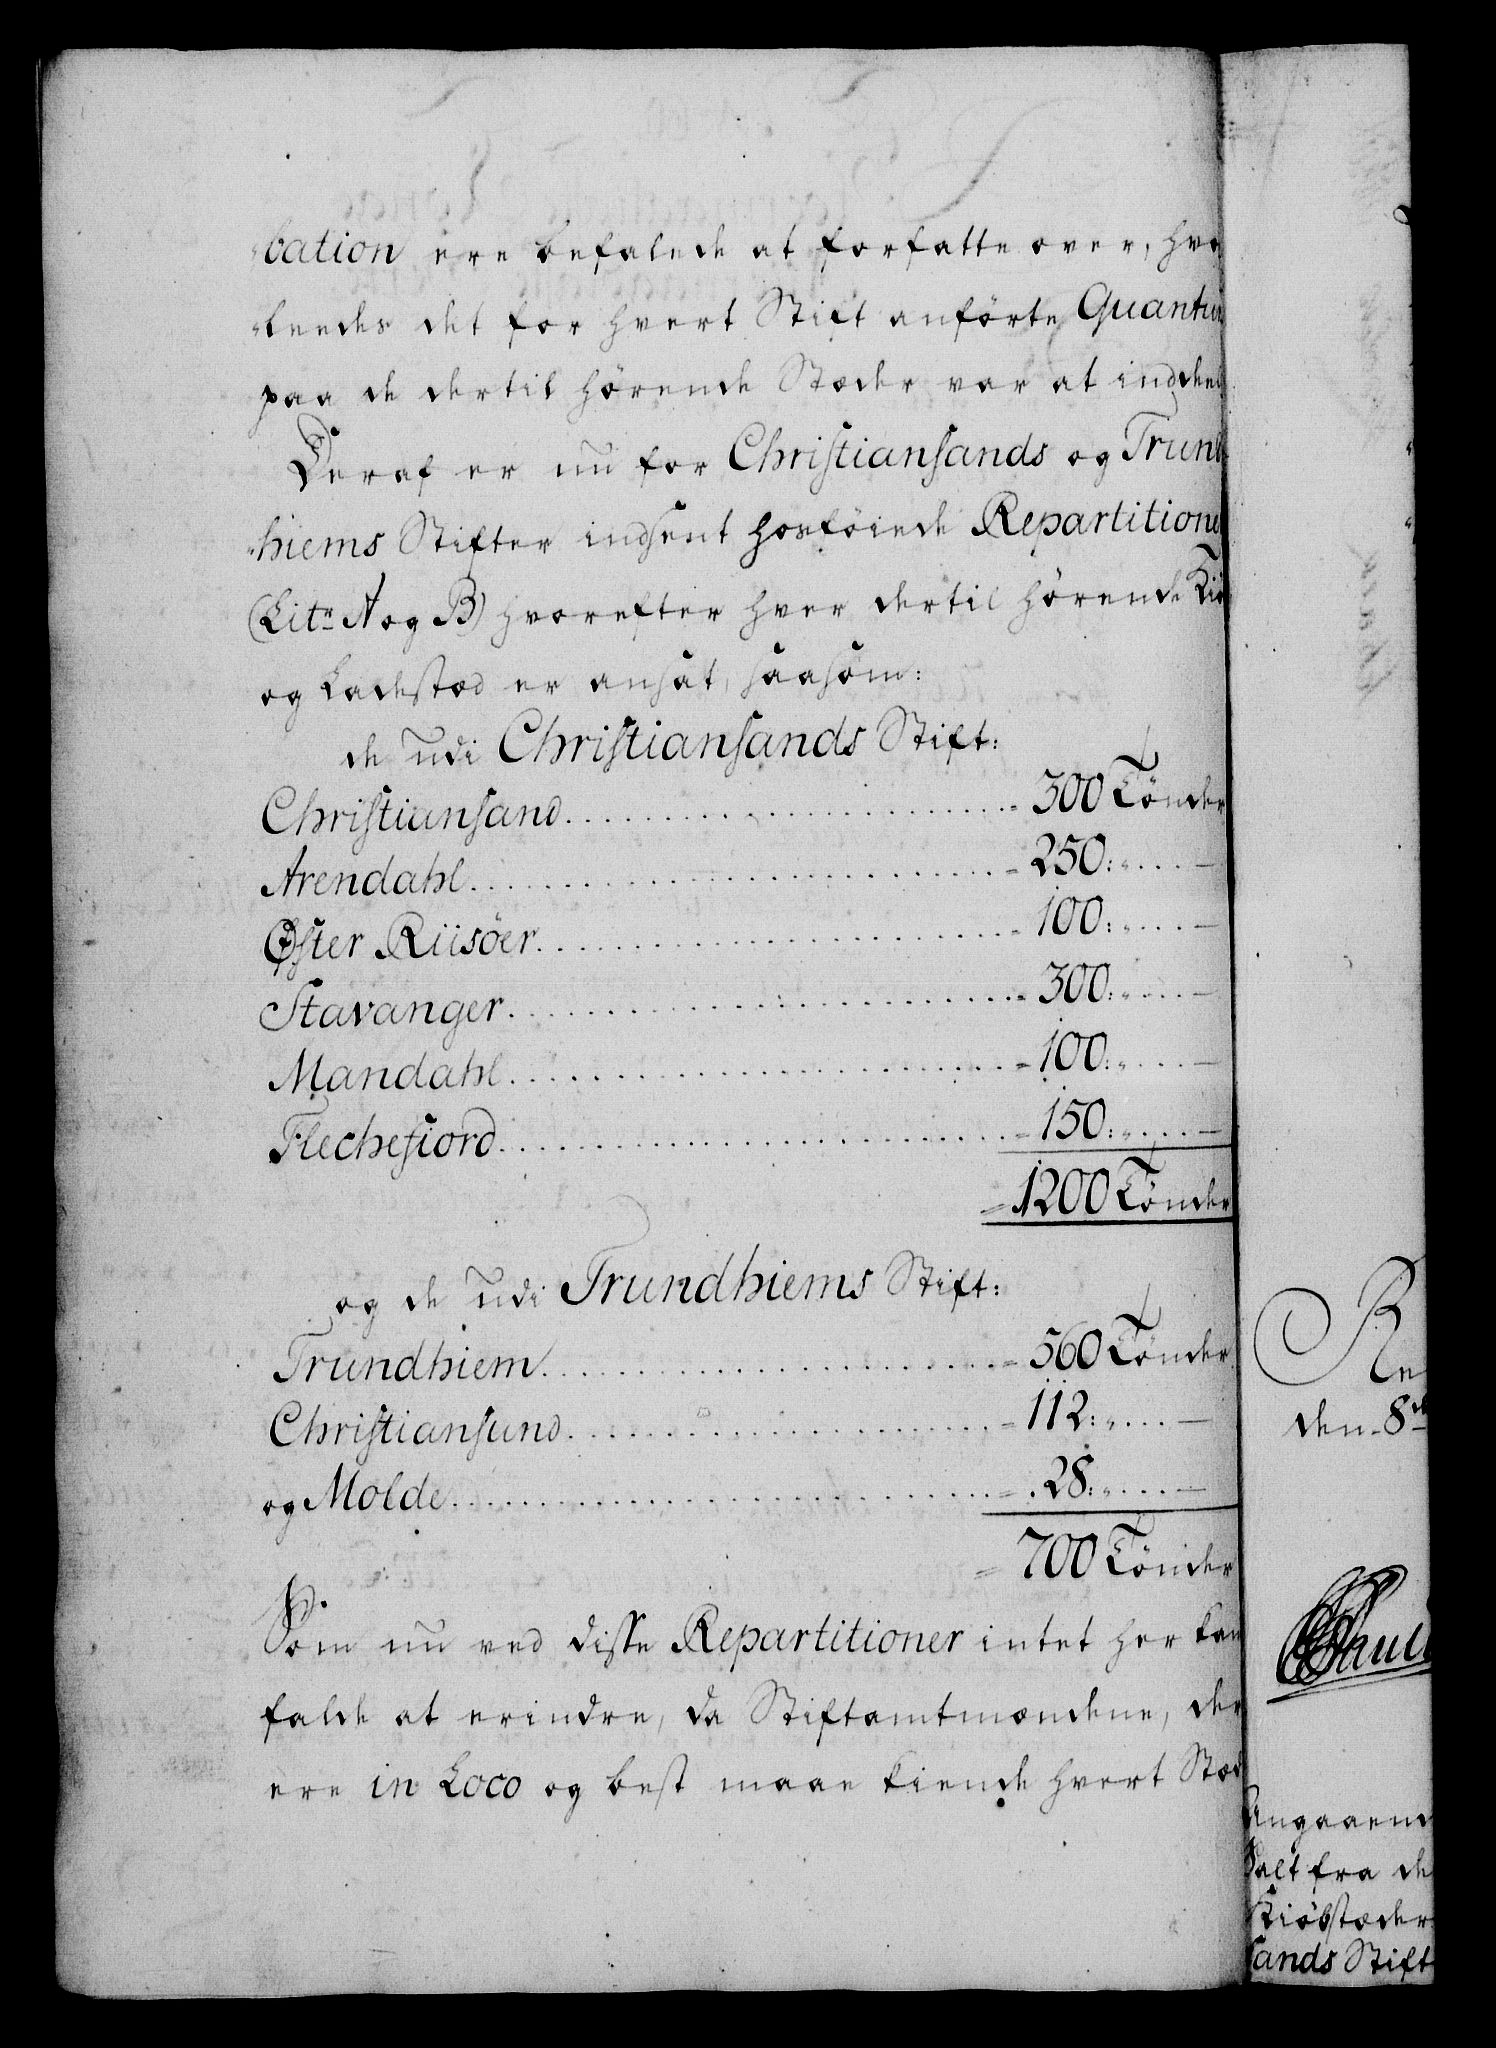 bation ere befalede at forfatte over, hvor
ledes det for hvert Stift anförte Quantum
paa de dertil hörende Stæder var at inddeele
Deraf er nu for Christiansands og Trund
hiems Stifter indsent hosföiede Repartitioner
(Litr A og B) hvorefter hver dertil hörende Kiö
og Ladestæd er ansat, saasom:
de udi Christiansands Stift:
Christiansand. . . . . . . . . . 300 Tönder
Arendahl. . . . . . . . . . 250:". . . . —
Öster Riisöer. . . . . . . . . . 100:". . . . —
Stavanger. . . . . . . . . . 300:". . . . —
Mandahl. . . . . . . . . . 100:". . . . —
Flechefiord. . . . . . . . . . 150:". . . . —
1200 Tönder
og de udi Trundhiems Stift:
Trundhiem. . . . . . . . . . 560 Tönder
Christiansund. . . . . . . . . . 112:". . . . —
og Molde. . . . . . . . . . 28:". . . . —
700 Tönder
Som nu ved disse Repartitioner intet her kan
falde at erindre, da Stiftamtmændene, der
ere in Loco og best maae kiende hvert Stæd
Re
den 8de
Angaaend
Salt fra de
Kiöbstæder
sands Stift